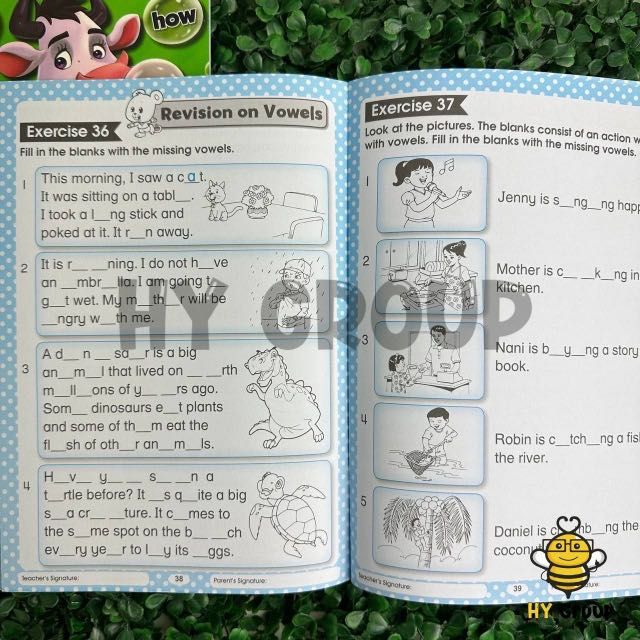 how
Exercise 36
Revision on Vowels
Fill in the blanks with the missing vowels.
1 This morning, I saw a c a t.
It was sitting on a tabl__.
I took a l__ng stick and
poked at it. It r__n away.
2 It is r__ __ning. I do not h__ve
an __mbr__lla. I am going t__
g__t wet. My m__th__r will be
__ngry w__th me.
3 A d__n__sa__r is a big
an__m__l that lived on __ __rth
m__ll__ons of y__ __rs ago.
Som__ dinosaurs e__t plants
and some of th__m eat the
fl__sh of oth__r an__m__ls.
4 H__v__ y__ __ s__ __n a
t__rtle before? It __s q__ite a big
s__a cr__ __ture. It c__mes to
the s__me spot on the b__ __ch
ev__ry ye__r to l__y its __ggs.
Teacher's Signature:
38
Parent's Signature:
Exercise 37
Look at the pictures. The blanks consist of an action w
with vowels. Fill in the blanks with the missing vowels.
1 Jenny is s__ng__ng happ
2 Mother is c__ __k__ng in
kitchen.
3 Nani is b__y__ng a story
book.
4 Robin is c__tch__ng a fis
the river.
5 Daniel is cl__mb__ng the
coconu
Teacher's Signature:
39
HY GROUP
HY GROUP